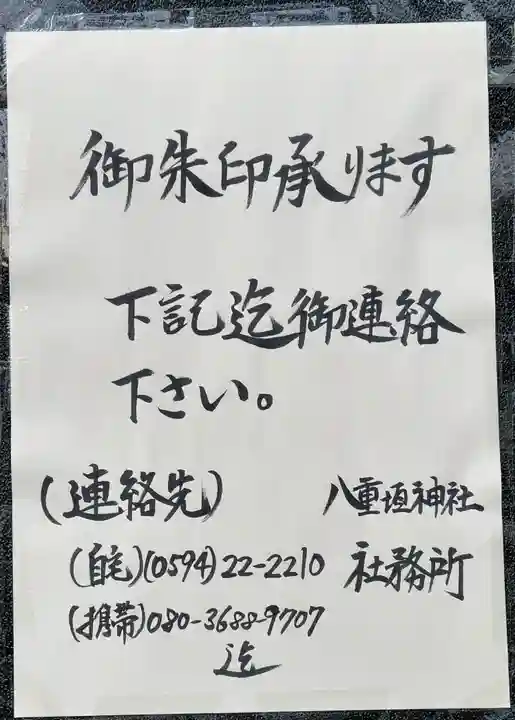 御朱印承ります
下記迄御連絡
下さい。
(連絡先)
八重垣神社
社務所
(自宅)(0594)22-2210
(携帯)080-3688-9707
迄